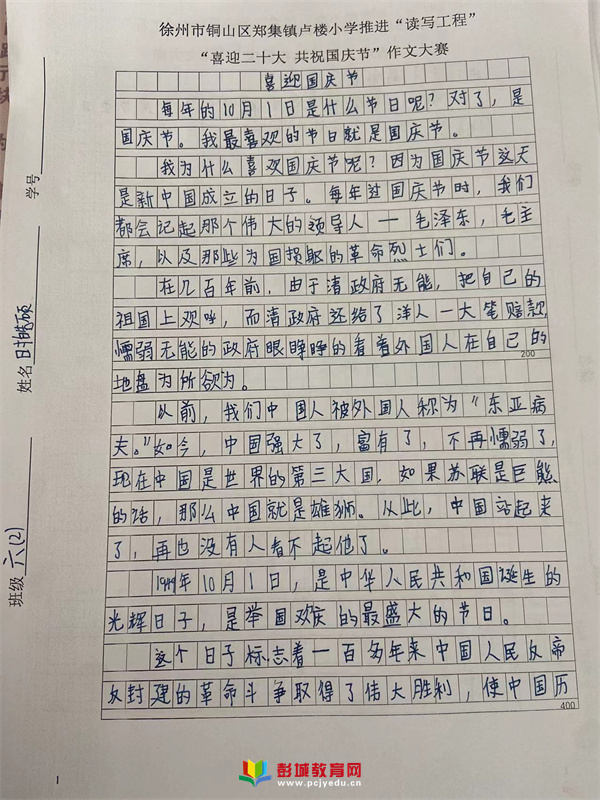 徐州市铜山区郑集镇卢楼小学推进“读写工程”
“喜迎二十大 共祝国庆节”作文大赛
喜迎国庆节
每年的10月1日是什么节日呢?对了,是
国庆节。我最喜欢的节日就是国庆节。
我为什么喜欢国庆节呢?因为国庆节这天
是新中国成立的日子。每年过国庆节时,我们
都会记起那个伟大的领导人—毛泽东,毛主
席,以及那些为国捐躯的革命烈士们。
在几百年前,由于清政府无能,把自己的
祖国上观,而清政府还给了洋人一大笔赔款
懦弱无能的政府眼睁睁的看着外国人在自己的
200
地盘为所欲为。
从前,我们中国人被外国人称为“东亚病
夫。”如今,中国强大了,富有了,不再懦弱了,
现在中国是世界的第三大国,如果苏联是巨熊
的话,那么中国就是雄狮。从此,中国站起来
了,再也没有人看不起他了。
1949年10月1日,是中华人民共和国诞生的
光辉日子,是举国欢庆的最盛大的节日。
这个日子标志着一百多年来中国人民反帝
反封建的革命斗争取得了伟大胜利,使中国历
400
学号
姓名
班级 六(2)
1
彭城教育网
www.pcjyedu.cn